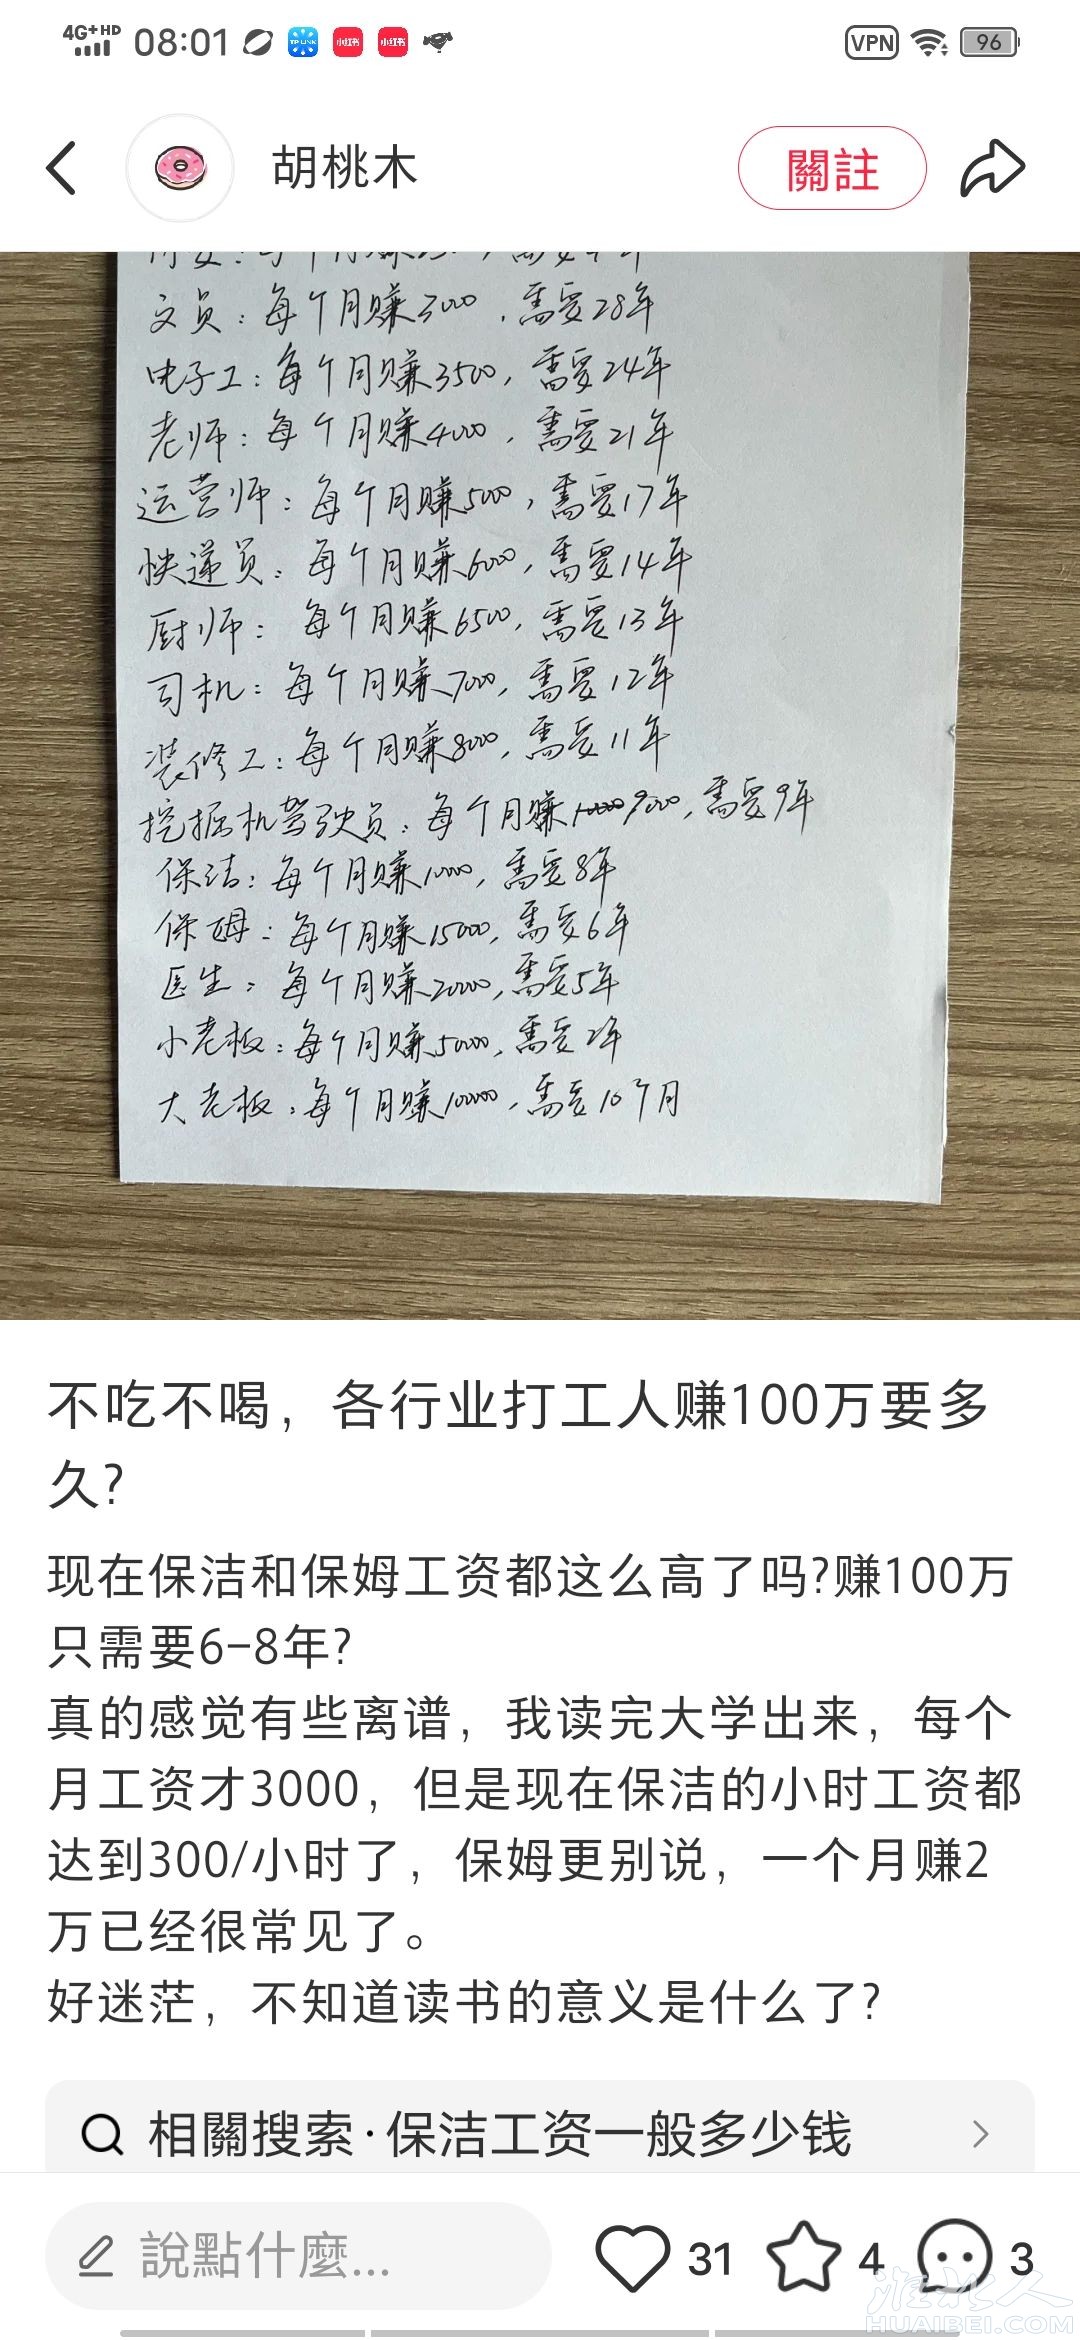 4G+HD 08:01 VPN 96
胡桃木 關註
文员：每个月赚3000，需要28年
电子工：每个月赚3500，需要24年
老师：每个月赚4000，需要21年
运营师：每个月赚5000，需要17年
快递员：每个月赚6000，需要14年
厨师：每个月赚6500，需要13年
司机：每个月赚7000，需要12年
装修工：每个月赚8000，需要11年
挖掘机驾驶员：每个月赚9000，需要9年
保洁：每个月赚10000，需要8年
保姆：每个月赚15000，需要6年
医生：每个月赚20000，需要5年
小老板：每个月赚50000，需要2年
大老板：每个月赚100000，需要10个月
不吃不喝，各行业打工人赚100万要多
久？
现在保洁和保姆工资都这么高了吗?赚100万
只需要6-8年?
真的感觉有些离谱，我读完大学出来，每个
月工资才3000，但是现在保洁的小时工资都
达到300/小时了，保姆更别说，一个月赚2
万已经很常见了。
好迷茫，不知道读书的意义是什么了?
相關搜索·保洁工资一般多少钱
說點什麼... 31 4 3
淮北人
HUAIBEI.COM